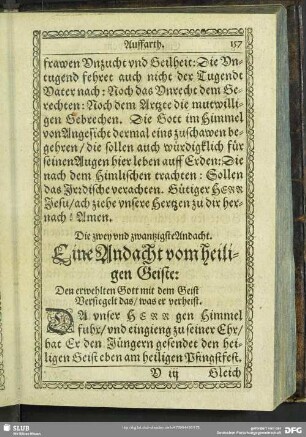 Auffarth. 157
frawen Vnzucht vnd Geilheit: Die Vn-
tugend fehret auch nicht der Tugendt
Vater nach: Noch das Vnrecht dem Ge-
rechten: Noch dem Artzte die mutwilli-
gen Gebrechen. Die Gott im Himmel
von Angesicht dermal eins zuschawen be-
gehren / die sollen auch würdigklich für
seinen Augen hier leben auff Erden: Die
nach dem Himlischen trachten: Sollen
das Jrrdische verachten. Gütiger HERR
Jesu / ach ziehe vnsere Hertzen zu dir her-
nach! Amen.
Die zwey vnd zwantzigste Andacht.
Eine Andacht vom heili-
gen Geiste:
Den erwehlten Gott mit dem Geist
Versiegelt das / was er verheist.
DA vnser HERR gen Himmel
fuhr / vnd eingieng zu seiner Ehr /
hat Er den Jüngern gesendet den hei-
ligen Geist eben am heiligen Pfingstfest.
V iij Gleich
SLUB
DFG